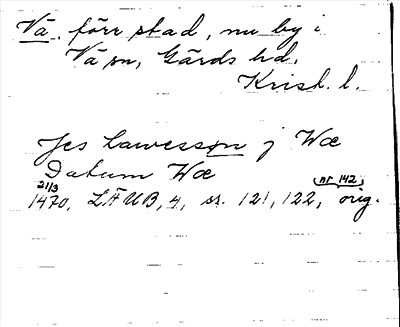 Vä. förr stad, nu by i
Vä sn, Gärds hd.
Krist. l.
Jes Lawesson j Wæ
Datum Wæ
21/3 (nr 142)
1470. LÄUB, 4, sr. 121, 122, orig.